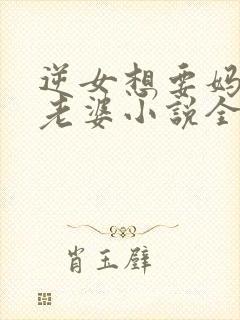 逆女想要妈
老婆小说全
肖玉璧